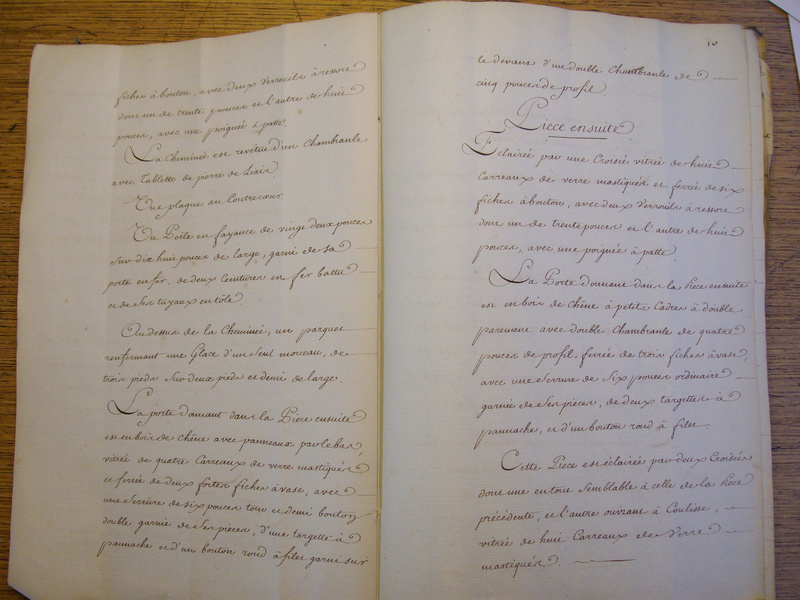 fiches à bouton, avec deux verrouils à ressort
dont un de trente pouces et l'autres de huit
pouces, avec une poignée à patte.
La Cheminée est revêtue d'un Chambranle
avec tablette de pierre de Liair.
Une plaque au Contrecœur
Un Poële en fayance de vingt deux pouces
sur dix huit pouces de large, garni de sa
porte en fer, de deux Ceintures en fer battu
et de ses tuyaux en tôle
Au dessus de la Cheminée, un parquet
renfermant une Glace d'un seul morceau, de
trois pieds sur deux pieds et demi de large.
La porte donnant dans la Piece ensuite
est en bois de chêne avec panneaux par le bas,
vitrée de quatre Carreaux de verre mastiqués
et ferrée de deux fortes fiches à vase, avec
une serrure de six pouces tour et demi bouton
double garnie de ses pieces, d'une targette à
pannache et d'un bouton rond à filet garni sur
10
le devant d'un double Chambranle de
cinq pouces de profil
Piece ensuite
Eclairée par une Croisée vitrée de huit
Carreaux de verre mastiqués et ferrée de six
fiches à bouton, avec deux verrouils à ressort
dont un de trente pouces et l'autre de huit
pouces, avec une poignée à patte
La Porte donnant dans la Piece ensuite
est en bois de chêne à petits Cadres à double
parement avec double Chambranle de quatre
pouces de profil, ferrée de trois fiches à vase,
avec une serrure de six pouces ordinaire
garnie de ses pieces, de deux targettes à
pannache, et d'un bouton rond à filet
Cette Piece est éclairée par deux Croisées
dont une en tout semblable à celle de la Piece
précédente, et l'autre ouvrant à Coulisse,
vitrée de huit Carreaux de verre
mastiqués.